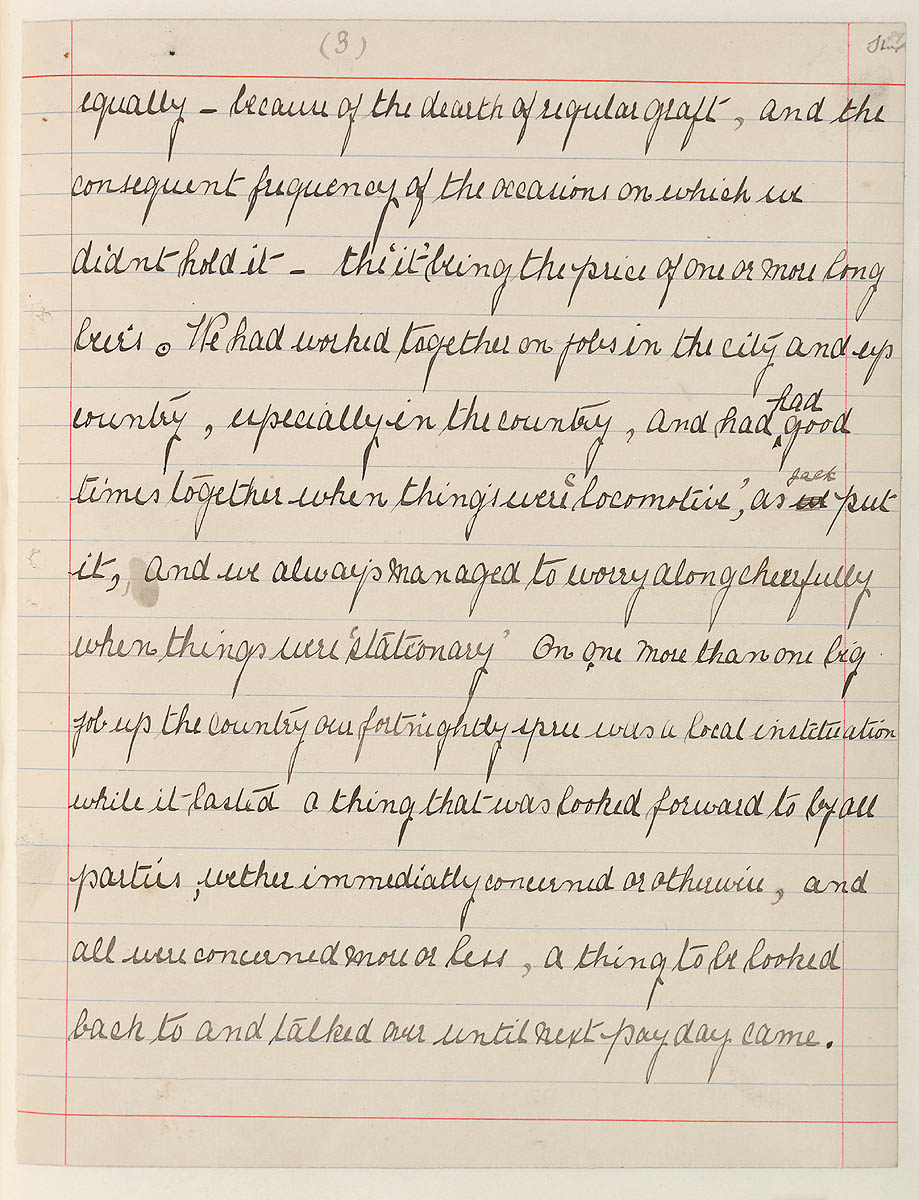 (3)
equally – because of the dearth of regular graft, and the
consequent frequency of the occasions on which we
didnt hold it – the 'it' being the price of one or more long
beers. We had worked together on jobs in the city and up
country, especially in the country, and had had good
times together when things were 'locomotive', as Jack put
it, and we always managed to worry along cheerfully
when things were 'stationary' On one more than one big
job up the country our fortnightly spree was a local instituation
while it lasted a thing that was looked forward to by all
parties, wether immediatly concerned or otherwise, and
all were concerned more or less, a thing to be looked
back to and talked over until next pay day came.